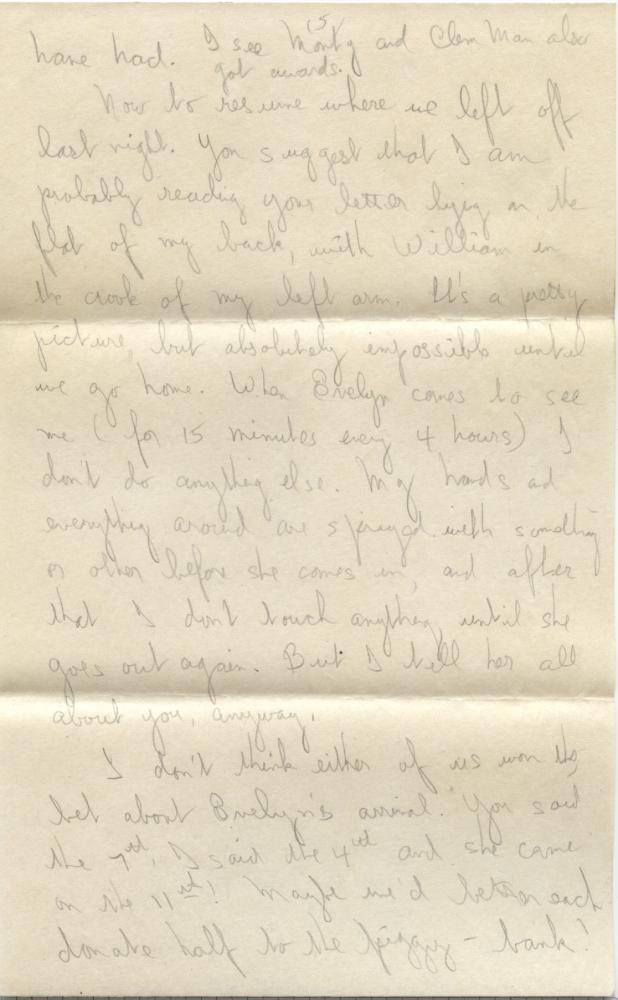 (5
have had. I see Monty and Clem Man also
got awards.
Now to resume where we left off
last night. You suggest that I am
probably reading your letter lying on the
flat of my back, with William in
the crook of my left arm. It's a pretty
picture, but absolutely impossible until
we go home. When Evelyn comes to see
me (for 15 minutes every 4 hours) I
don't do anything else. My hands and
everything around are sprayed with something
or other before she comes in, and after
that I don't touch anything until she
goes out again. But I tell her all
about you, anyway.
I don't think either of us won the
bet about Evelyn's arrival. You said
the 7th, I said the 4th and she came
on the 11th! Maybe we'd better each
donate half to the piggy-bank!